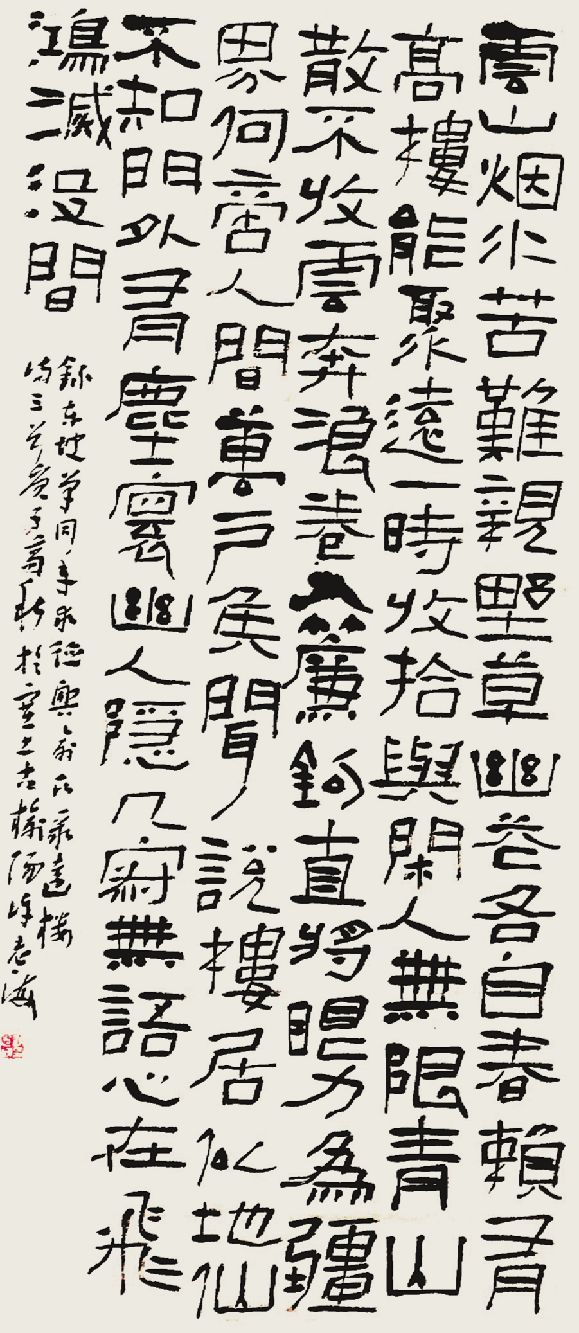 雲山烟水苦難親野草幽花各自春賴有
高樓能聚遠一時收拾與閑人無限青山
散不收雲奔浪卷入簾鉤直將眼力為疆
界何啻人間萬户侯聞說樓居似地仙
不知門外有塵寰幽人隱几寂無語心在飛
鴻滅没間
錄東坡單同年求德興俞氏聚遠樓
詩三首庚子高秋於塞上古榆陽海